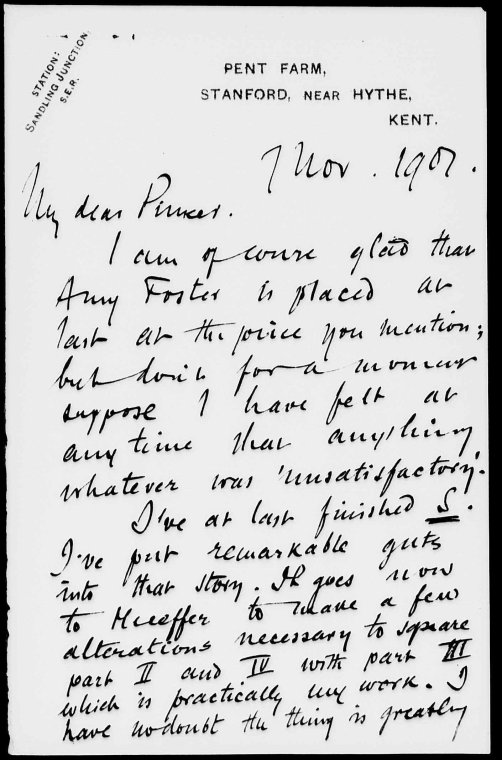 STATION:
SANDLING JUNCTION,
S.E.R.
PENT FARM,
STANFORD, NEAR HYTHE,
KENT.
7 Nov. 1901.
My dear Pinker.
I am of course glad that
Amy Foster is placed at
last at the price you mention;
but don't for a moment
suppose I have felt at
any time that anything
whatever was 'unsatisfactory'.
I've at last finished S.
I've put remarkable guts
into that story. It goes now
to Hueffer to make a few
alterations necessary to square
part II and IV with part III
which is practically my work. I
have no doubt the thing is greatly